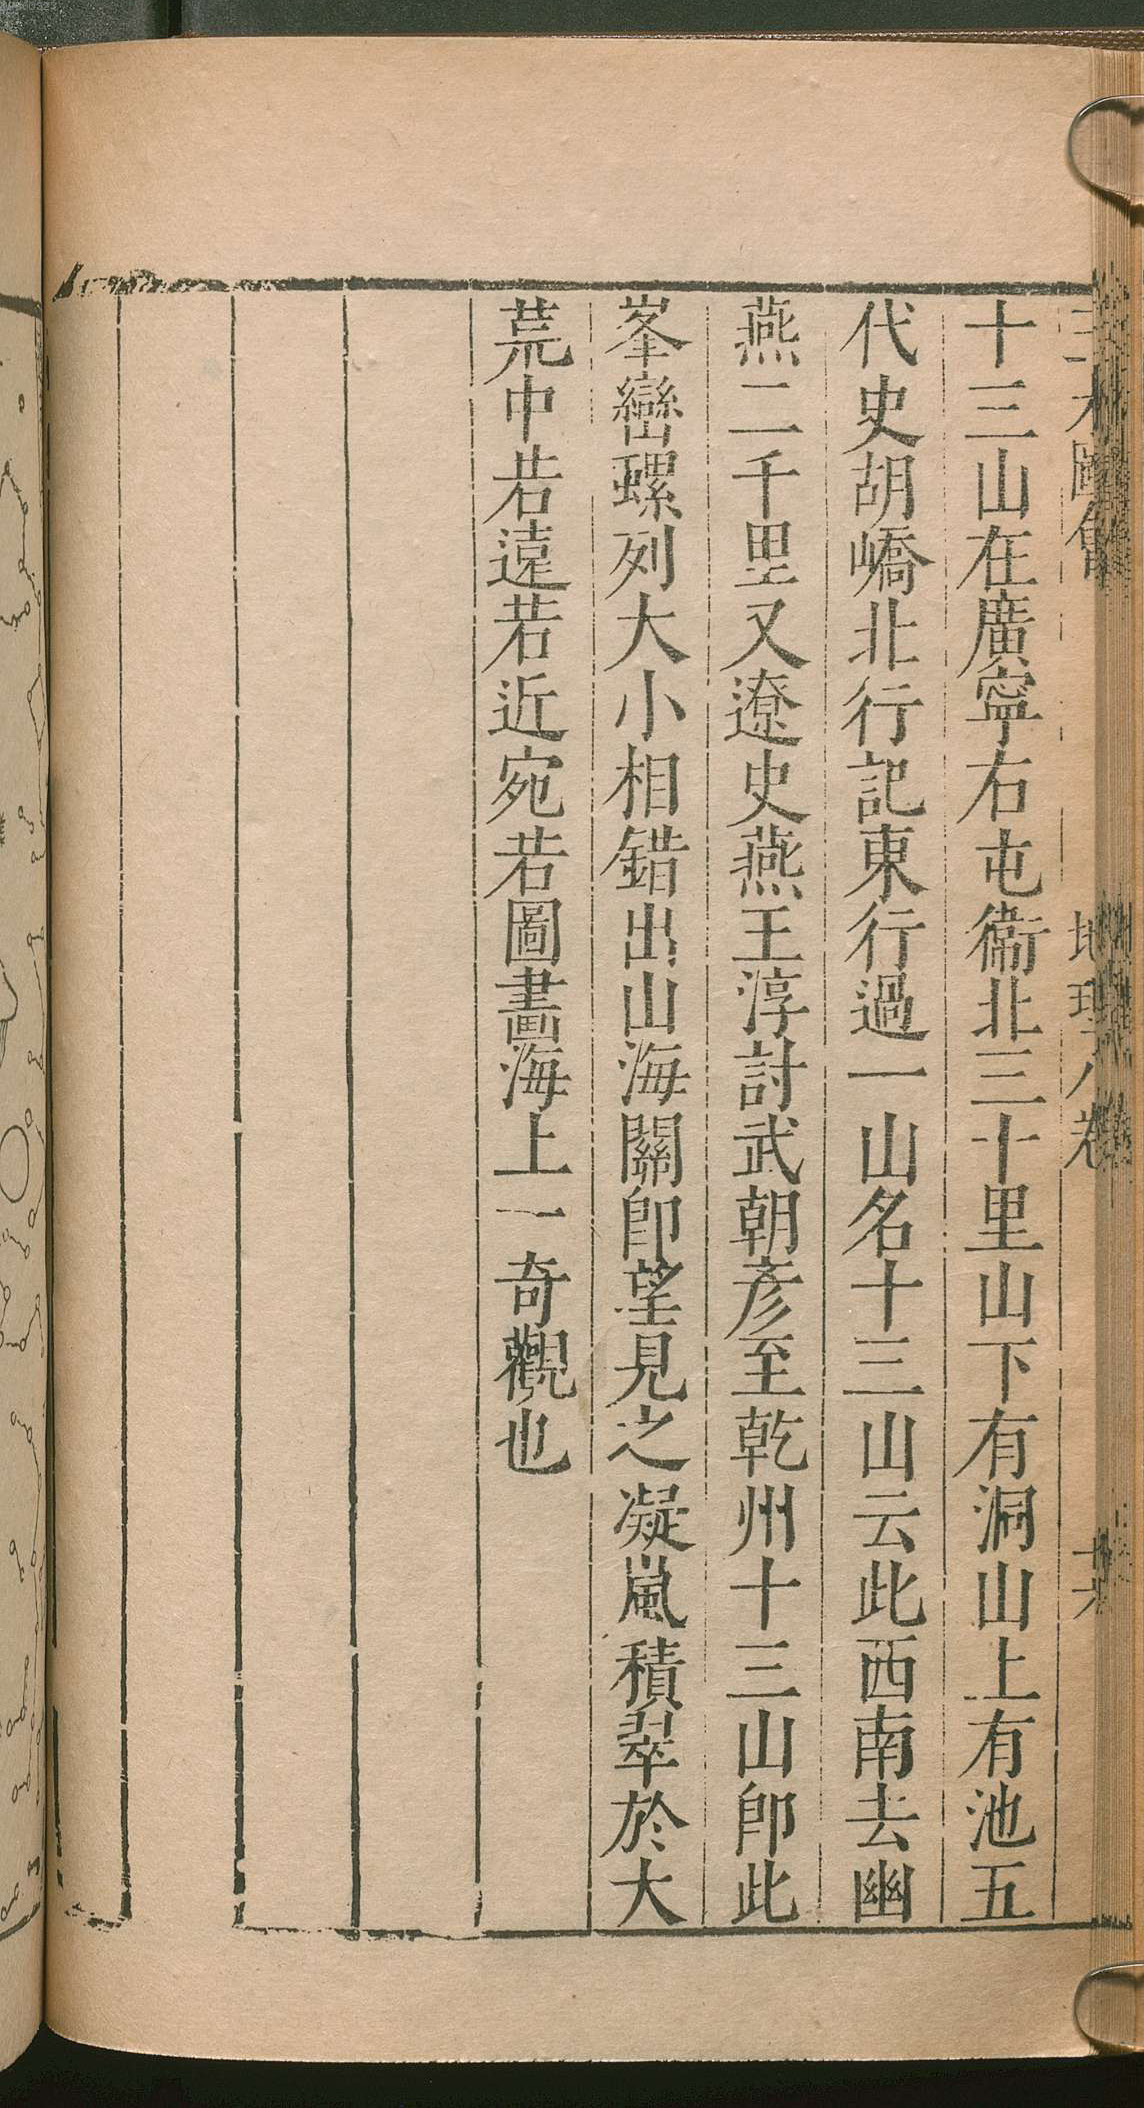 三才圖會 地理八卷 十六
十三山在廣寧右屯衞北三十里山下有洞山上有池五
代史胡嶠北行記東行過一山名十三山云此西南去幽
燕二千里又遼史燕王淳討武朝彥至乾州十三山卽此
峯巒螺列大小相錯出山海關卽望見之凝嵐積翠於大
荒中若遠若近宛若圖畫海上一奇觀也